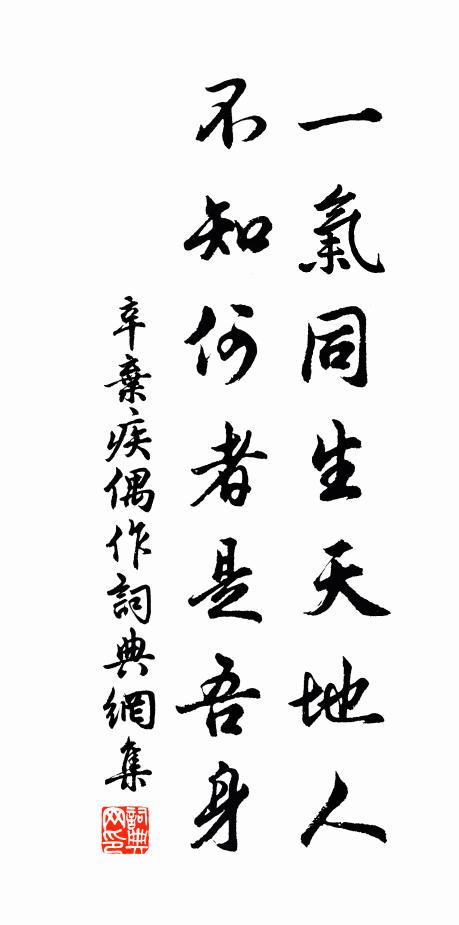 一氣同生天地人
不知何者是吾身
辛棄疾偶作詞典網集
詞典
网印